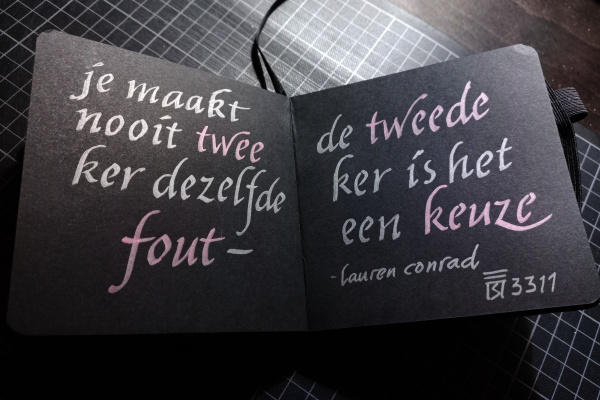 je maakt
nooit twee
ker dezelfde
fout-
de tweede
ker is het
een keuze
-lauren conrad
3311